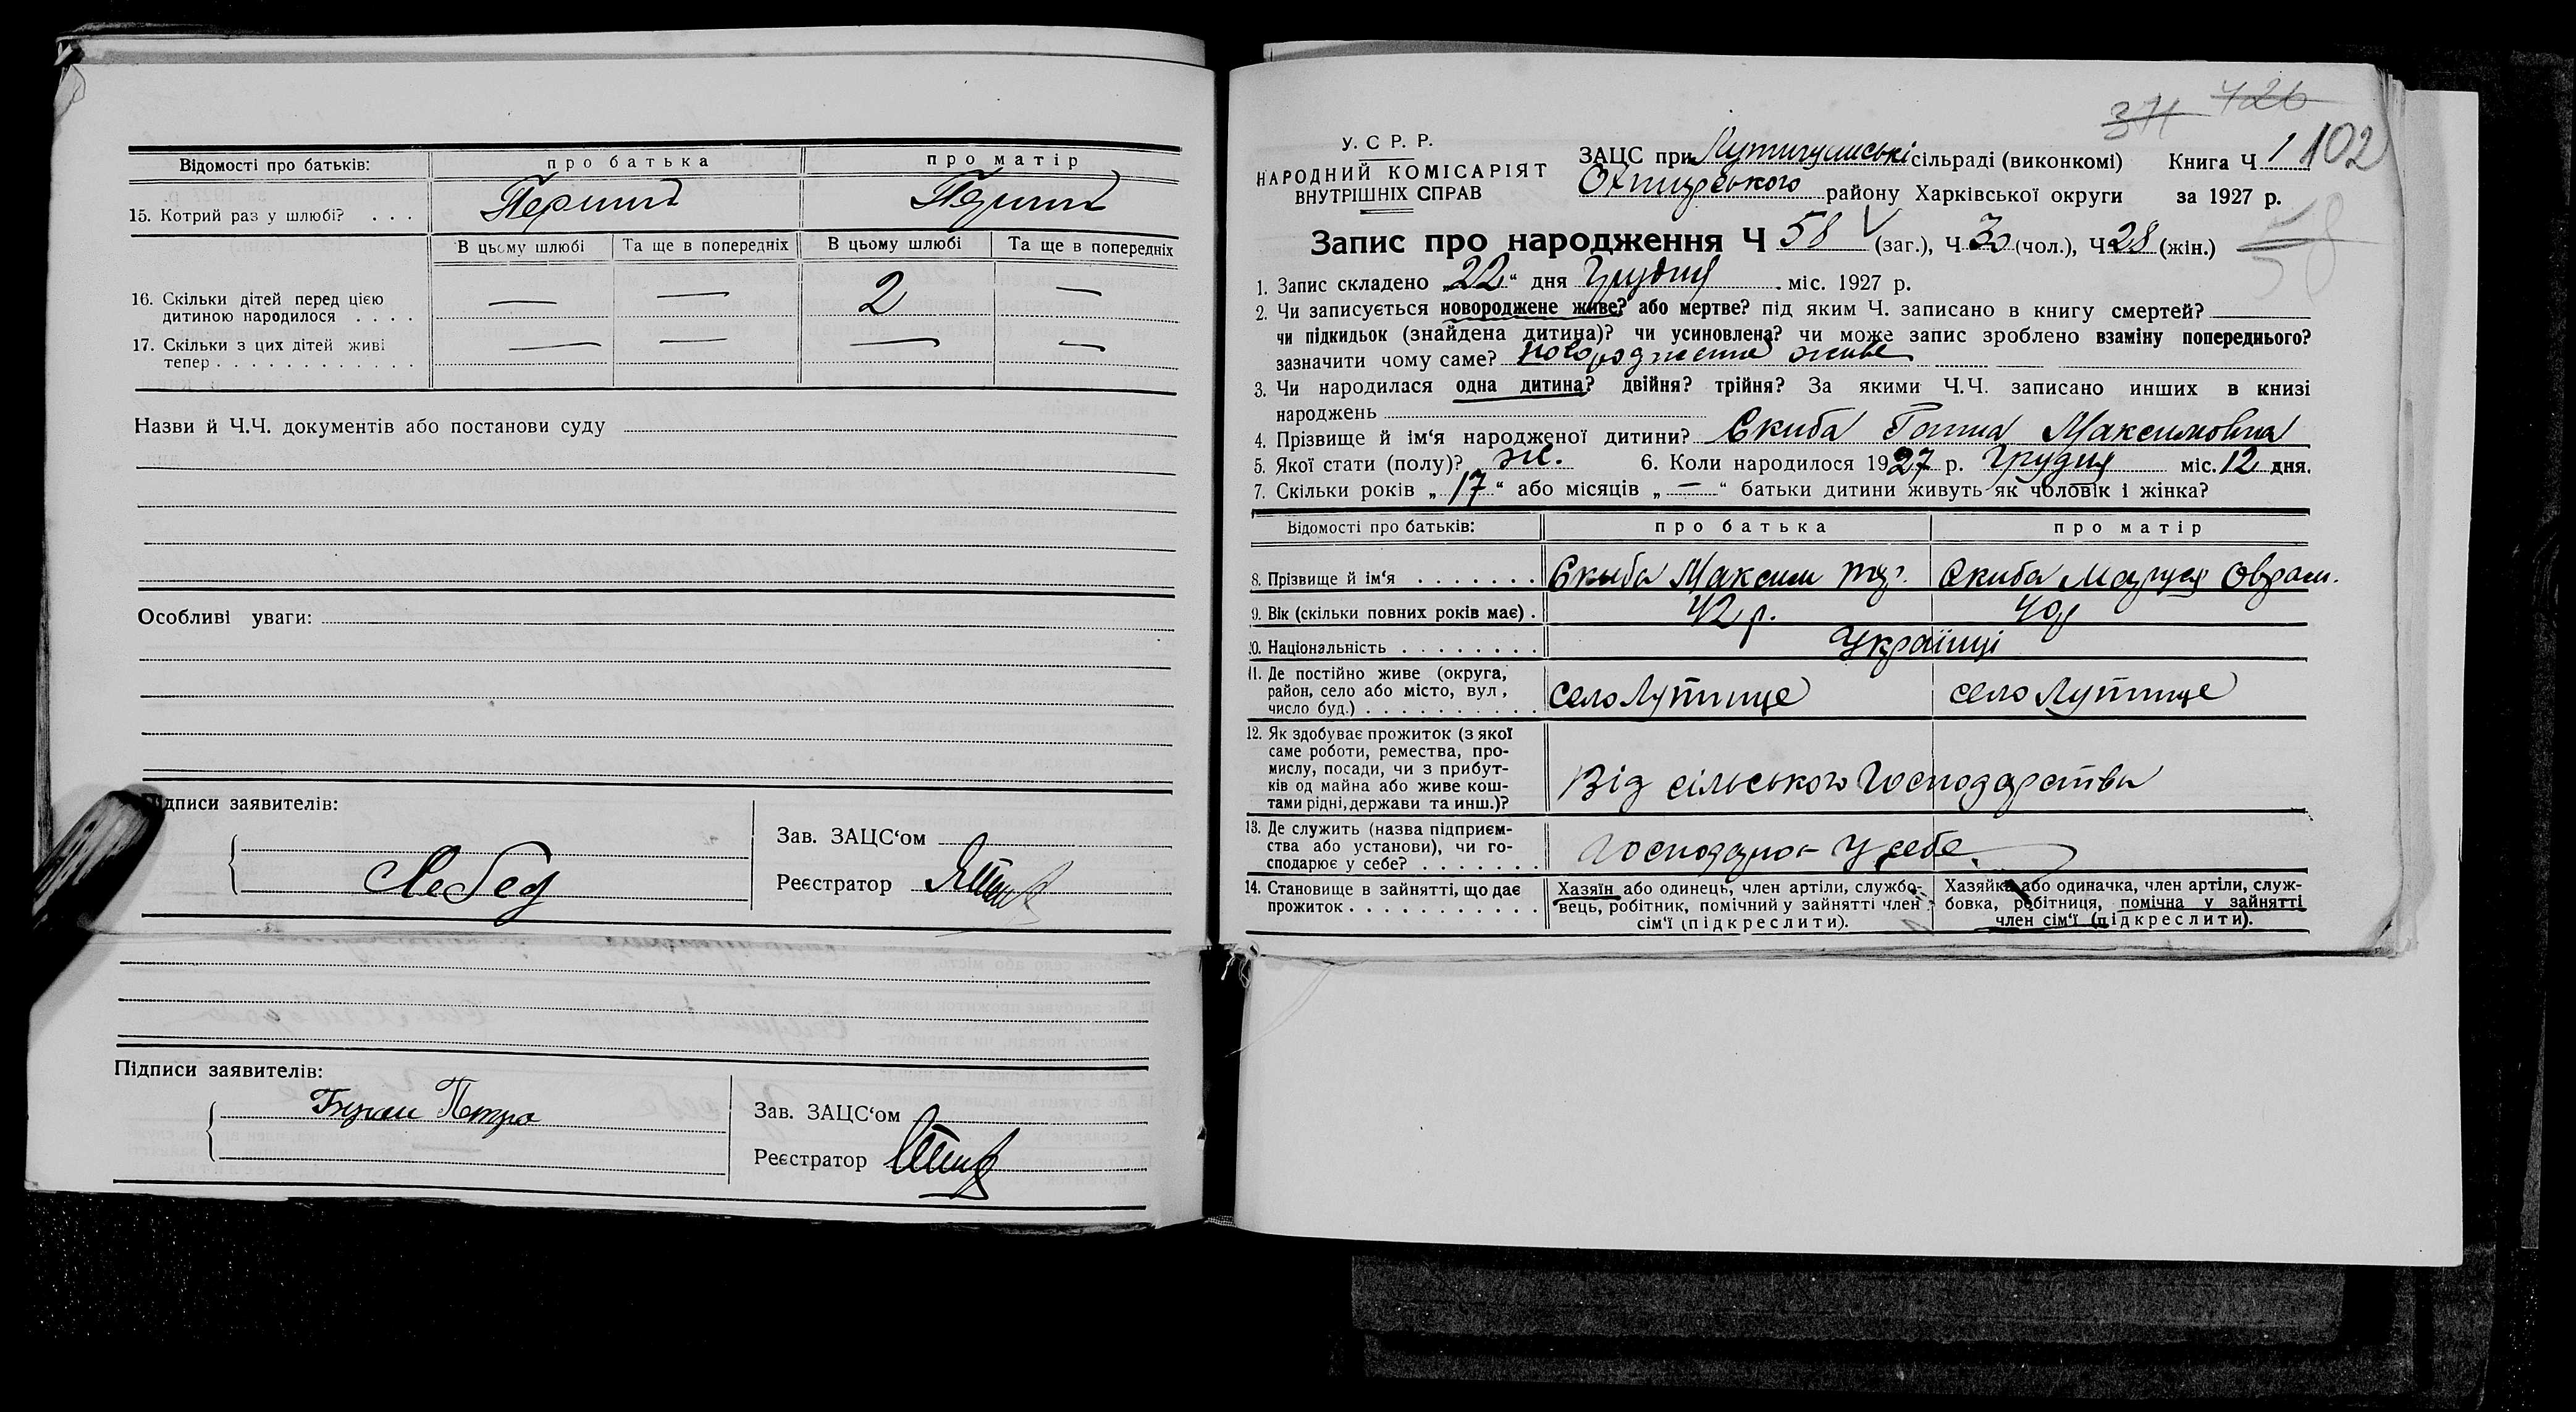 Відомості про батьків: про батька про матір
15. Котрий раз у шлюбі? . . . Перший Перший
В цьому шлюбі Та ще в попередніх В цьому шлюбі Та ще в попередніх
16. Скільки дітей перед цією
дитиною народилося . . . . — — 2 —
17. Скільки з цих дітей живі
тепер . . . . . . . . . . . . — — — —
Назви й Ч.Ч. документів або постанови суду
Особливі уваги:
Підписи заявителів:
Зав. ЗАЦС‘ом
Лебед
Реєстратор
Підписи заявителів:
Петро
Зав. ЗАЦС‘ом
Реєстратор
371 426
102
У. С. Р. Р.
НАРОДНИЙ КОМІСАРІЯТ
ВНУТРІШНІХ СПРАВ
ЗАЦС при сільраді (виконкомі) Книга Ч 1
Охтирського району Харківської округи за 1927 р.
58
Запис про народження Ч 58 (заг.), Ч 30 (чол.), Ч 28 (жін.)
1. Запис складено „22“ дня Грудня міс. 1927 р.
2. Чи записується новороджене живе? або мертве? під яким Ч. записано в книгу смертей?
чи підкидьок (знайдена дитина)? чи усиновлена? чи може запис зроблено взаміну попереднього?
зазначити чому саме? новороджене живе
3. Чи народилася одна дитина? двійня? трійня? За якими Ч.Ч. записано инших в книзі
народжень
4. Прізвище й ім‘я народженої дитини? Скиба Ганна Максимовна
5. Якої стати (полу)? ж. 6. Коли народилося 1927 р. Грудня міс. 12 дня.
7. Скільки років „17“ або місяців „—“ батьки дитини живуть як чоловік і жінка?
Відомості про батьків: про батька про матір
8. Прізвище й ім‘я . . . . . . . Скиба Максим Скиба Маруся Оврам.
9. Вік (скільки повних років має) . 42 р. 40 р
10. Національність . . . . . . . . Українці
11. Де постійно живе (округа,
район, село або місто, вул.,
число буд.) . . . . . . . . . . село Лутище село Лутище
12. Як здобуває прожиток (з якої
саме роботи, ремества, про-
мислу, посади, чи з прибут-
ків од майна або живе кош-
тами рідні, держави та инш.)? Від сільського господарства
13. Де служить (назва підприєм-
ства або установи), чи го-
сподарює у себе? . . . . . . . у себе
14. Становище в зайнятті, що дає
прожиток . . . . . . . . . . .
Хазяїн або одинець, член артіли, службо-
вець, робітник, помічний у зайнятті член
сім‘ї (підкреслити).
Хазяйка або одиначка, член артіли, служ-
бовка, робітниця, помічна у зайнятті
член сім‘ї (підкреслити).